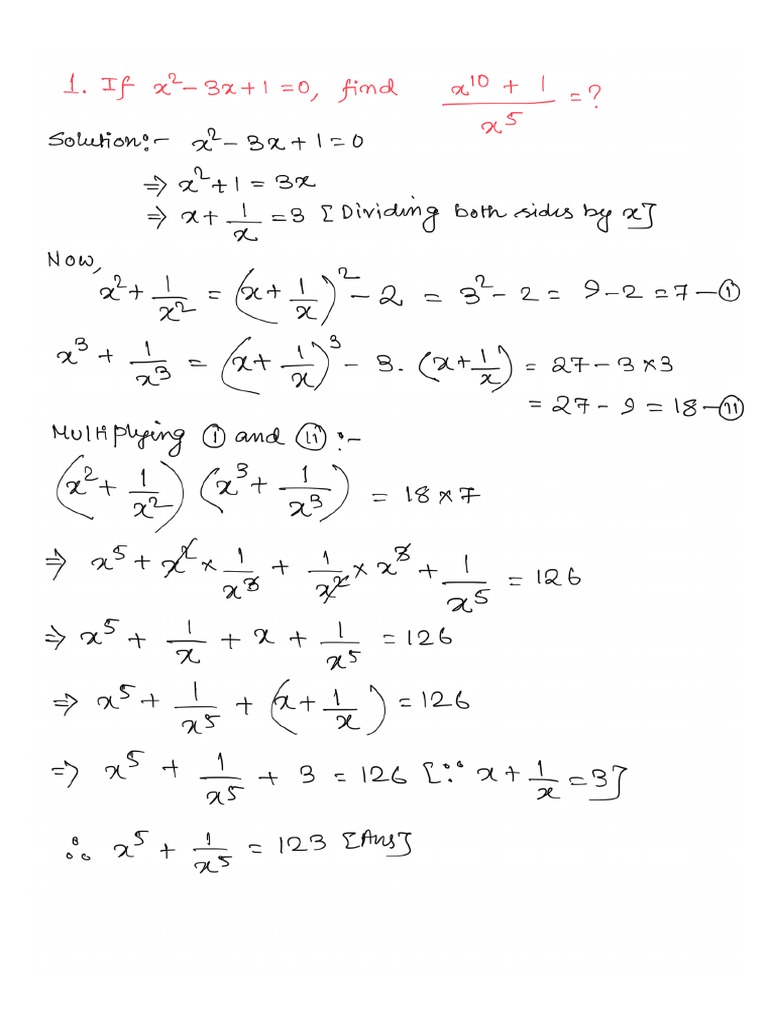 1. If x² - 3x + 1 = 0, find (x¹⁰ + 1)/x⁵ = ?
Solution:- x² - 3x + 1 = 0
⇒ x² + 1 = 3x
⇒ x + 1/x = 3 [Dividing both sides by x]
Now,
x² + 1/x² = (x + 1/x)² - 2 = 3² - 2 = 9 - 2 = 7 - (i)
x³ + 1/x³ = (x + 1/x)³ - 3. (x + 1/x) = 27 - 3 × 3
= 27 - 9 = 18 - (ii)
Multiplying (i) and (ii) :-
(x² + 1/x²) (x³ + 1/x³) = 18 × 7
⇒ x⁵ + x² × 1/x³ + 1/x² × x³ + 1/x⁵ = 126
⇒ x⁵ + 1/x + x + 1/x⁵ = 126
⇒ x⁵ + 1/x⁵ + (x + 1/x) = 126
⇒ x⁵ + 1/x⁵ + 3 = 126 [∵ x + 1/x = 3]
∴ x⁵ + 1/x⁵ = 123 [Ans]